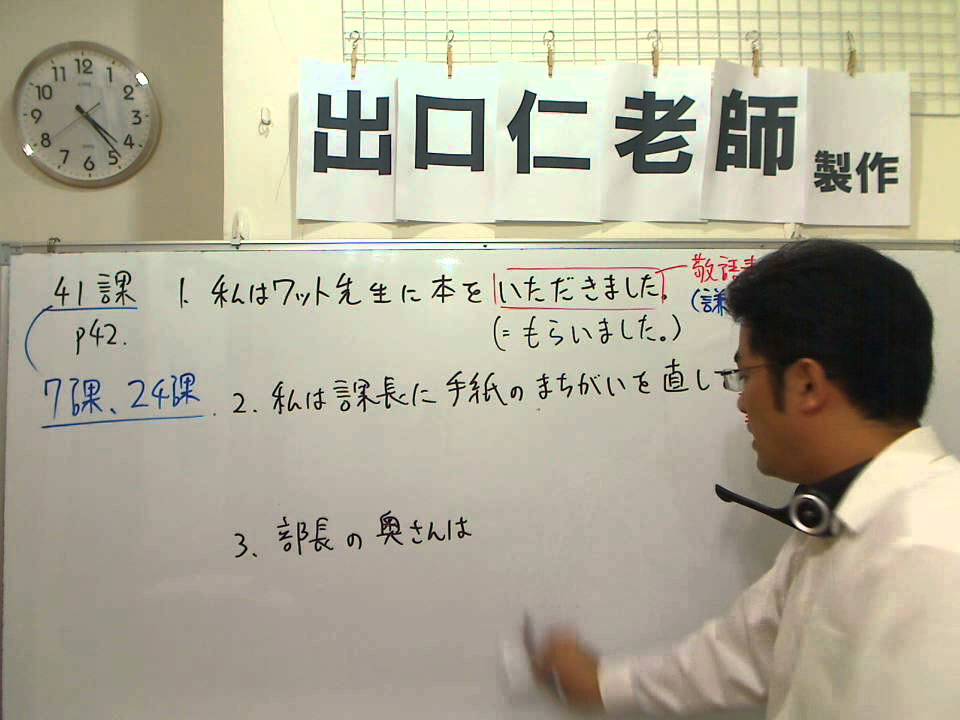 12 1 2 3 4 5 6 7 8 9 10 11
出口仁老師 製作
41課 1. 私はワット先生に本をいただきました。 敬語
p42. (=もらいました。) (謙
7課、24課. 2. 私は課長に手紙のまちがいを直して
3. 部長の奥さんは